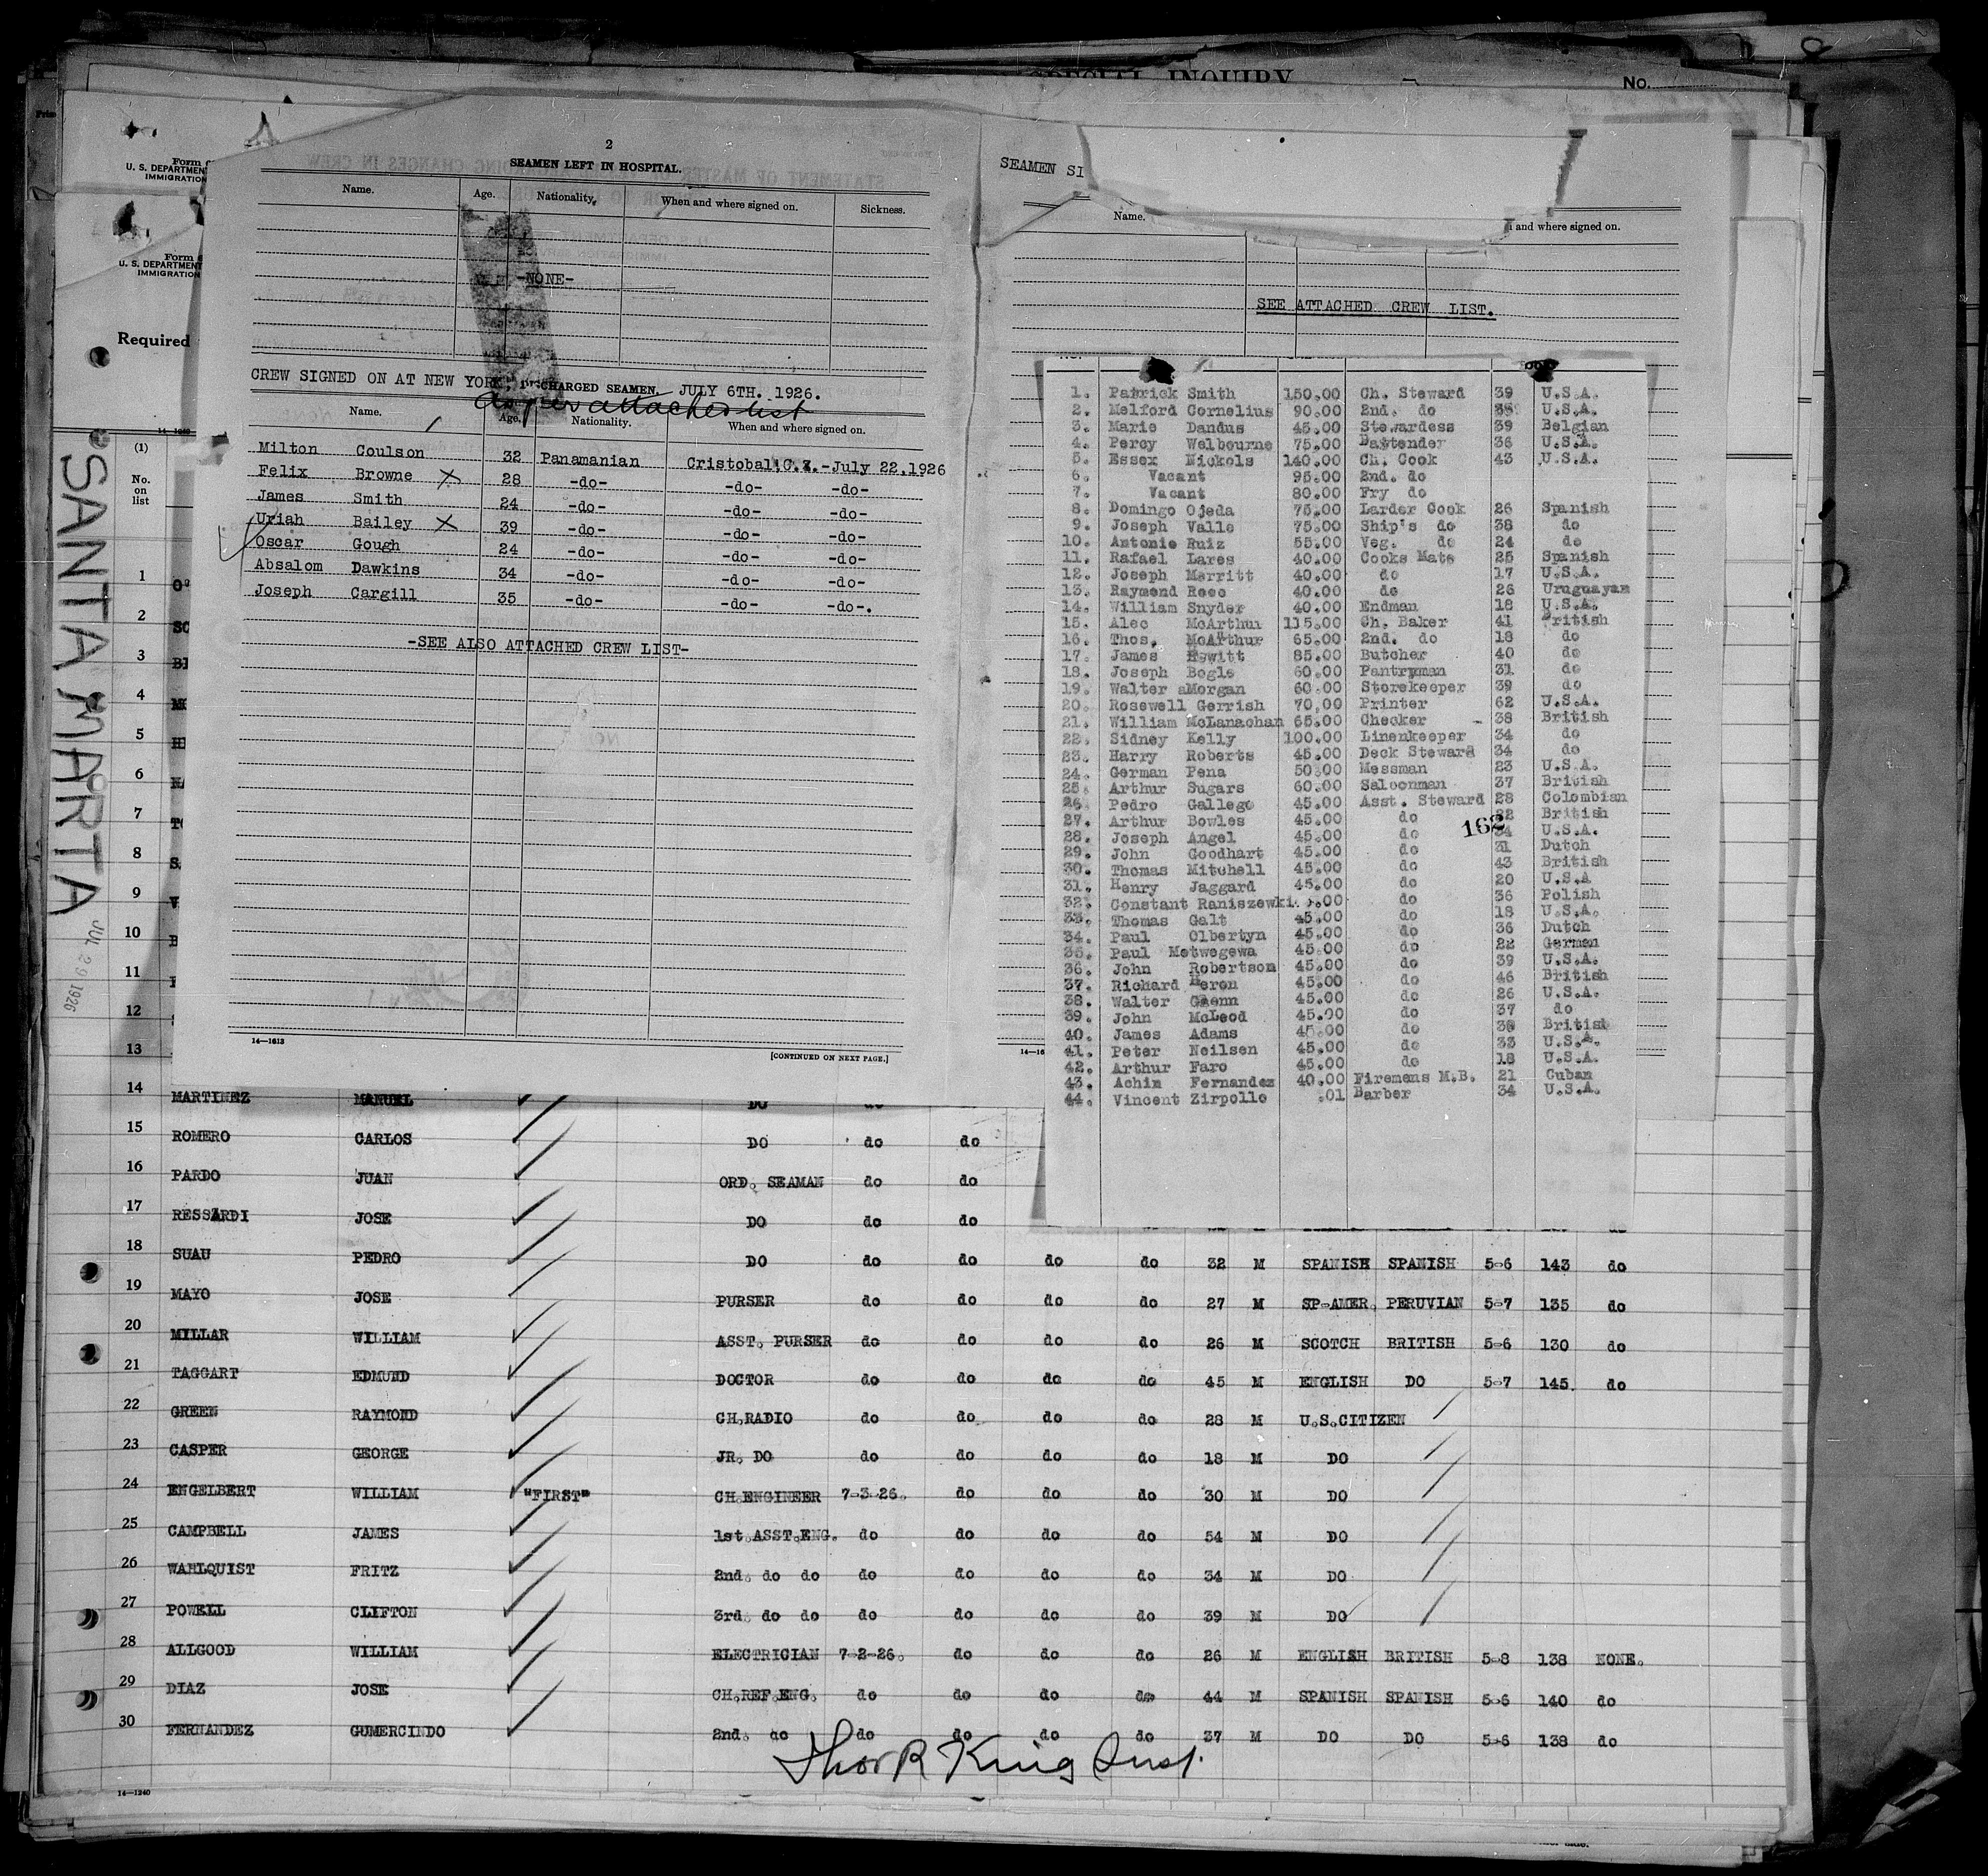 SPECIAL INQUIRY
No.
Form
U. S. DEPARTMENT
IMMIGRATION
Form
U. S. DEPARTMENT
IMMIGRATION
Required
14—1240
(1)
No.
on
list
SANTA MARTA
JUL 29 1926
2
SEAMEN LEFT IN HOSPITAL.
Name. Age. Nationality. When and where signed on. Sickness.
-NONE-
CREW SIGNED ON AT NEW YORK, DISCHARGED SEAMEN. JULY 6TH. 1926.
As per attached list
Name. Age. Nationality. When and where signed on.
Milton Coulson 32 Panamanian Cristobal, C.Z.-July 22.1926
Felix Browne X 28 -do- -do- -do-
James Smith 24 -do- -do- -do-
Uriah Bailey X 39 -do- -do- -do-
Oscar Gough 24 -do- -do- -do-
Absalom Dawkins 34 -do- -do- -do-
Joseph Cargill 35 -do- -do- -do-.
-SEE ALSO ATTACHED CREW LIST-
14—1613
[CONTINUED ON NEXT PAGE.]
SEAMEN SI
Name. and where signed on.
SEE ATTACHED CREW LIST.
1. Patrick Smith 150.00 Ch. Steward 39 U.S.A.
2. Melford Cornelius 90.00 2nd. do U.S.A.
3. Marie Dandus 45.00 Stewardess 39 Belgian
4. Percy Welbourne 75.00 Bartender 36 U.S.A.
5. Essex Nickols 140.00 Ch. Cook 43 U.S.A.
6. Vacant 95.00 2nd. do
7. Vacant 80.00 Fry do
8. Domingo Ojeda 75.00 Larder Cook 26 Spanish
9. Joseph Valle 75.00 Ship's do 38 do
10. Antonio Ruiz 55.00 Veg. do 24 do
11. Rafael Lares 40.00 Cooks Mate 25 Spanish
12. Joseph Merritt 40.00 do 17 U.S.A.
13. Raymond Roco 40.00 do 26 Uruguayan
14. William Snyder 40.00 Endman 18 U.S.A.
15. Alec McArthur 115.00 Ch. Baker 41 British
16. Thos. McArthur 65.00 2nd. do 18 do
17. James Hewitt 85.00 Butcher 40 do
18. Joseph Bogle 60.00 Pantryman 31 do
19. Walter Morgan 60.00 Storekeeper 39 do
20. Rosewell Gerrish 70.00 Printer 62 U.S.A.
21. William McLanachan 65.00 Checker 38 British
22. Sidney Kelly 100.00 Linenkeeper 34 do
23. Harry Roberts 45.00 Deck Steward 34 do
24. German Pena 50.00 Messman 23 U.S.A.
25. Arthur Sugars 60.00 Saloonman 37 British
26. Pedro Gallego 45.00 Asst. Steward 28 Colombian
27. Arthur Bowles 45.00 do British
162
28. Joseph Angel 45.00 do U.S.A.
29. John Goodhart 45.00 do 31 Dutch
30. Thomas Mitchell 45.00 do 43 British
31. Henry Jaggard 45.00 do 20 U.S.A
32. Constant Raniszewki. do 36 Polish
33. Thomas Galt 45.00 do 18 U.S.A.
34. Paul Olbertyn 45.00 do 36 Dutch
35. Paul Metwegewa 45.00 do 22 German
36. John Robertson 45.00 do 39 U.S.A.
37. Richard Heron 45.00 do 46 British
38. Walter 45.00 do 26 U.S.A.
39. John McLeod 45.00 do 37 do
40. James Adams 45.00 do 30 British
41. Peter Neilsen 45.00 do 33 U.S.A.
42. Arthur Faro 45.00 do 18 U.S.A.
43. Achin Fernandez 40.00 Firemens M.B. 21 Cuban
44. Vincent Zirpollo .01 Barber 34 U.S.A.
14—16
1
2
3
4
5
6
7
8
9
10
11
12
13
14 MARTINEZ MANUEL DO do
15 ROMERO CARLOS DO do do
16 PARDO JUAN ORD. SEAMAN do do
17 RESSARDI JOSE DO do do
18 SUAU PEDRO DO do do do do 32 M SPANISH SPANISH 5-6 143 do
19 MAYO JOSE PURSER do do do do 27 M SP-AMER. PERUVIAN 5-7 135 do
20 MILLAR WILLIAM ASST. PURSER do do do do 26 M SCOTCH BRITISH 5-6 130 do
21 TAGGART EDMUND DOCTOR do do do do 45 M ENGLISH DO 5-7 145. do
22 GREEN RAYMOND CH.RADIO do do do do 28 M U.S.CITIZEN
23 CASPER GEORGE JR. DO do do do do 18 M DO
24 ENGELBERT WILLIAM "FIRST" CH.ENGINEER 7-3-26. do do do 30 M DO
25 CAMPBELL JAMES 1st.ASST.ENG. do do do do 54 M DO
26 WAHLQUIST FRITZ 2nd. do do do do do do 34 M DO
27 POWELL CLIFTON 3rd. do do do do do do 39 M DO
28 ALLGOOD WILLIAM ELECTRICIAN 7-2-26. do do do 26 M ENGLISH BRITISH 5-8 138 NONE.
29 DIAZ JOSE CH.REF.ENG. do do do do 44 M SPANISH SPANISH 5-6 140 do
30 FERNANDEZ GUMERCINDO 2nd. do do do do do 37 M DO DO 5-6 138 do
Thos R King Insp.
14—1240